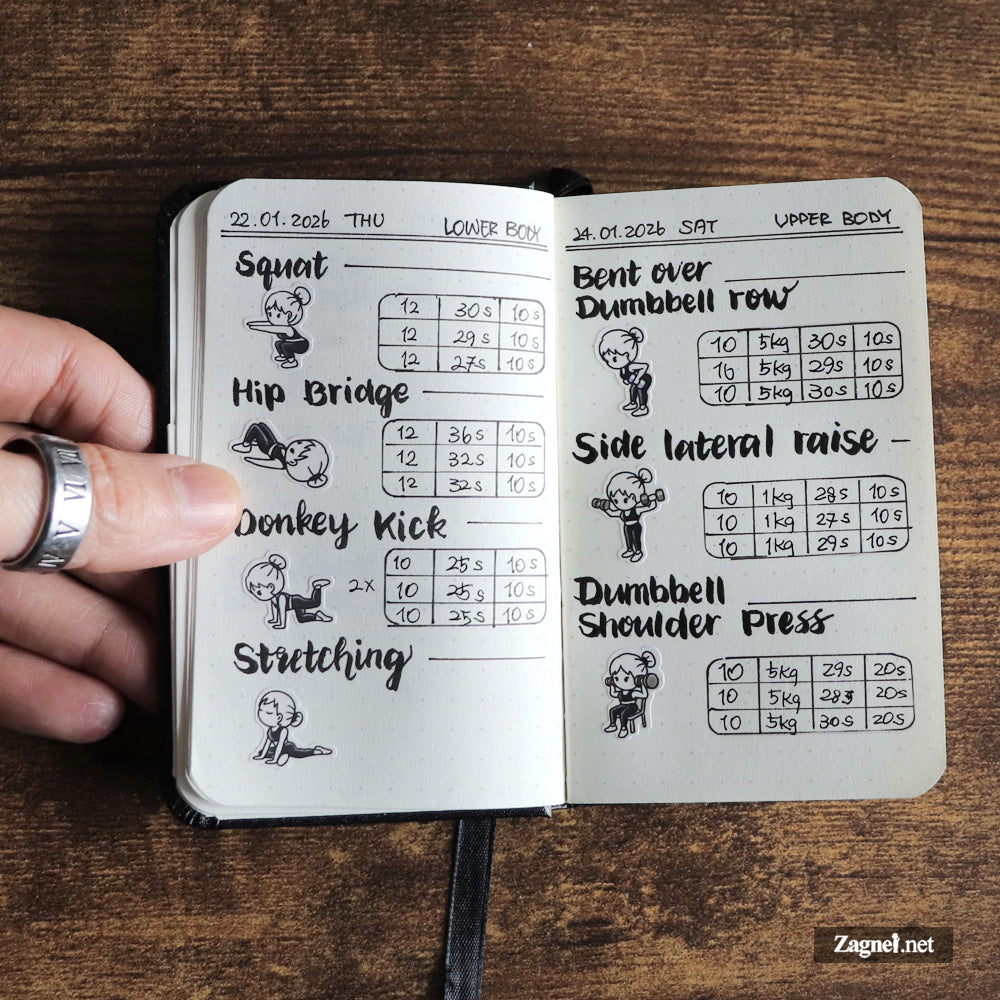 22.01.2026 THU LOWER BODY
Squat
12 30s 10s
12 29s 10s
12 27s 10s
Hip Bridge
12 36s 10s
12 32s 10s
12 32s 10s
Donkey Kick
2x
10 25s 10s
10 25s 10s
10 25s 10s
Stretching
24.01.2026 SAT UPPER BODY
Bent over
Dumbbell row
10 5kg 30s 10s
10 5kg 29s 10s
10 5kg 30s 10s
Side lateral raise
10 1kg 28s 10s
10 1kg 27s 10s
10 1kg 29s 10s
Dumbbell
Shoulder Press
10 5kg 29s 20s
10 5kg 28s 20s
10 5kg 30s 20s
Zagnel.net